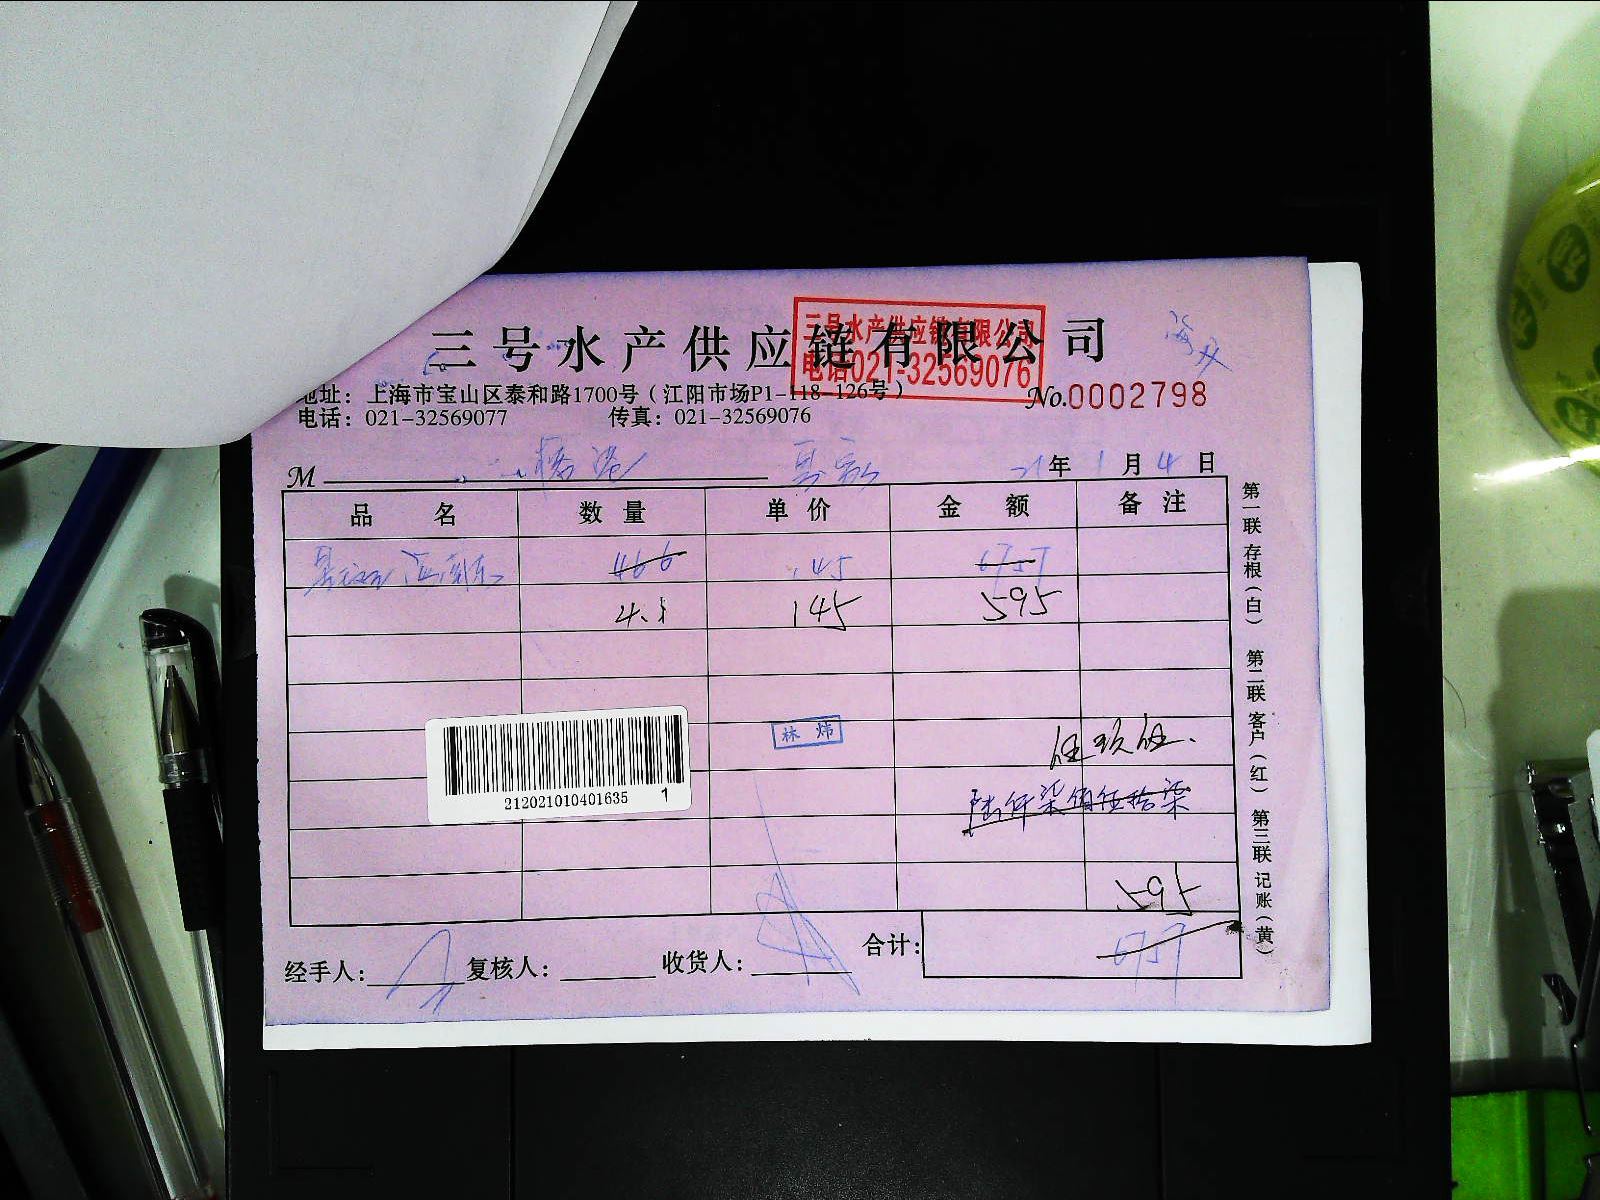 三号水产供应链有限公司
三号水产供应链有限公司
电话021-32569076
地址：上海市宝山区泰和路1700号（江阳市场P1-118-126号）
No.0002798
电话：021-32569077 传真：021-32569076
M
21年 1月 4日
品名 数量 单价 金额 备注
466 145 6757
4.1 145 595
林炜
伍玖伍.
陆仟柒佰伍拾柒
212021010401635 1
595
合计： 6757
经手人： 复核人： 收货人：
第一联 存根（白） 第二联 客户（红） 第三联 记账（黄）